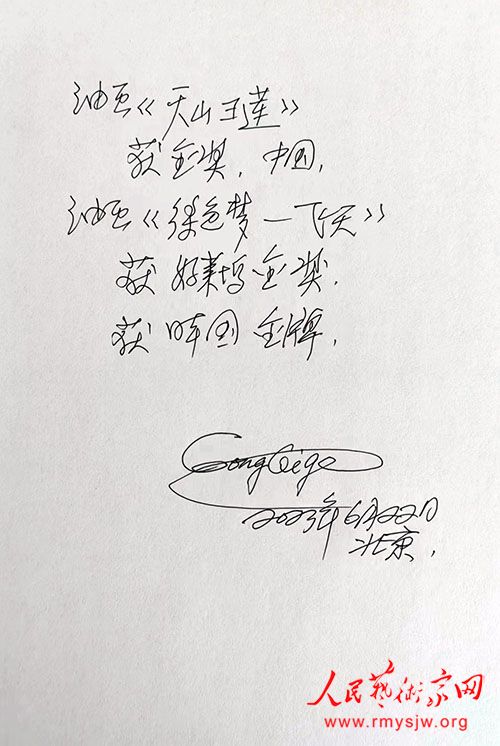 油画《天山玉莲》
获金奖，中国，
油画《绿色梦—飞天》
获好莱坞金奖.
获 韩国 金牌，
2023年6月22日
北京，
人民艺术家网
www.rmysjw.org